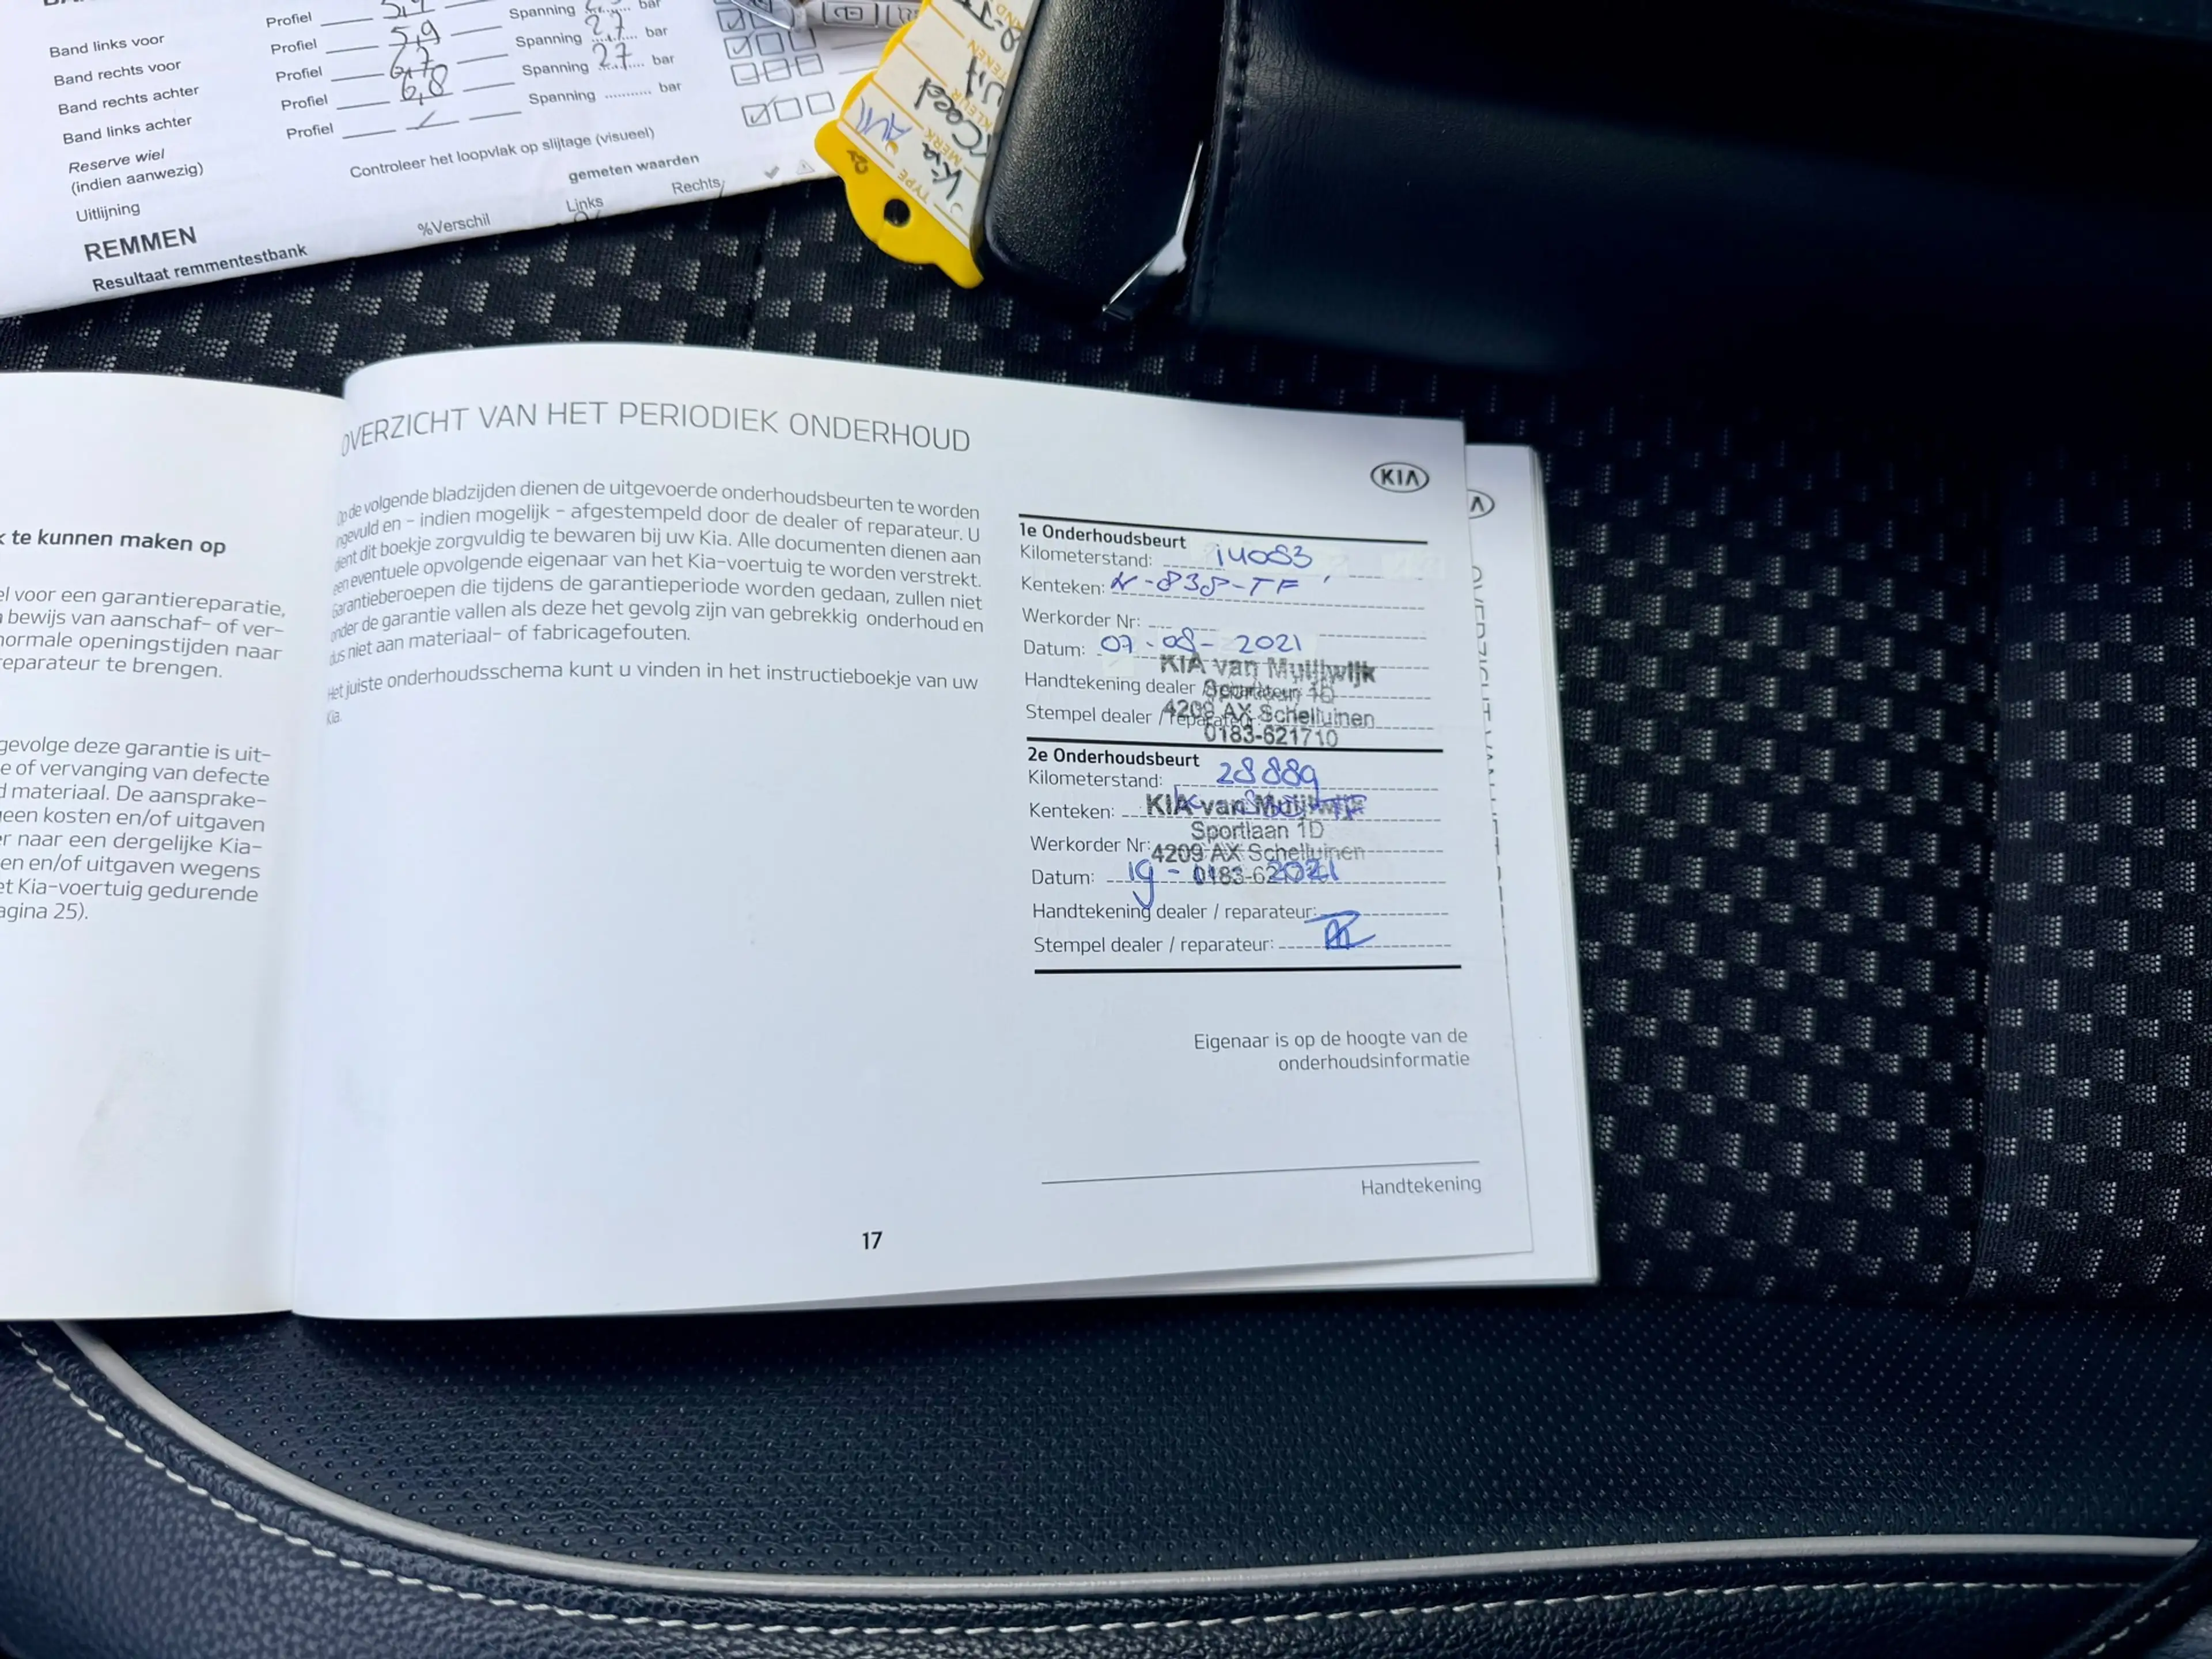 Profiel
Spanning
bar
Band links voor
Profiel 5,9
Spanning 2,7 bar
Band rechts voor
Profiel
Spanning 2,7 bar
Band rechts achter
Profiel 6,8
Spanning bar
Band links achter
Profiel
Reserve wiel
(indien aanwezig)
Controleer het loopvlak op slijtage (visueel)
Uitlijning
gemeten waarden
REMMEN
%Verschil
Links
Rechts
Resultaat remmentestbank
TYPE
MERK Kia
KLEUR
KIA
k te kunnen maken op
el voor een garantiereparatie,
bewijs van aanschaf- of ver-
normale openingstijden naar
reparateur te brengen.
gevolge deze garantie is uit-
e of vervanging van defecte
d materiaal. De aansprake-
geen kosten en/of uitgaven
er naar een dergelijke Kia-
en en/of uitgaven wegens
et Kia-voertuig gedurende
agina 25).
OVERZICHT VAN HET PERIODIEK ONDERHOUD
Op de volgende bladzijden dienen de uitgevoerde onderhoudsbeurten te worden
ngevuld en - indien mogelijk - afgestempeld door de dealer of reparateur. U
dient dit boekje zorgvuldig te bewaren bij uw Kia. Alle documenten dienen aan
een eventuele opvolgende eigenaar van het Kia-voertuig te worden verstrekt.
Garantieberoepen die tijdens de garantieperiode worden gedaan, zullen niet
onder de garantie vallen als deze het gevolg zijn van gebrekkig onderhoud en
dus niet aan materiaal- of fabricagefouten.
Het juiste onderhoudsschema kunt u vinden in het instructieboekje van uw
Kia.
1e Onderhoudsbeurt
Kilometerstand: 14083
Kenteken: N-838-TF
Werkorder Nr:
Datum: 07-08-2021
KIA van Muijlwijk
Handtekening dealer
Stempel dealer / reparateur
4209 AX Schelluinen
0183-621710
2e Onderhoudsbeurt
Kilometerstand: 28889
Kenteken:
KIA van Muijlwijk
Sportlaan 1D
Werkorder Nr:
4209 AX Schelluinen
Datum: 19 - 2021
0183-62
Handtekening dealer / reparateur:
Stempel dealer / reparateur:
Eigenaar is op de hoogte van de
onderhoudsinformatie
Handtekening
17